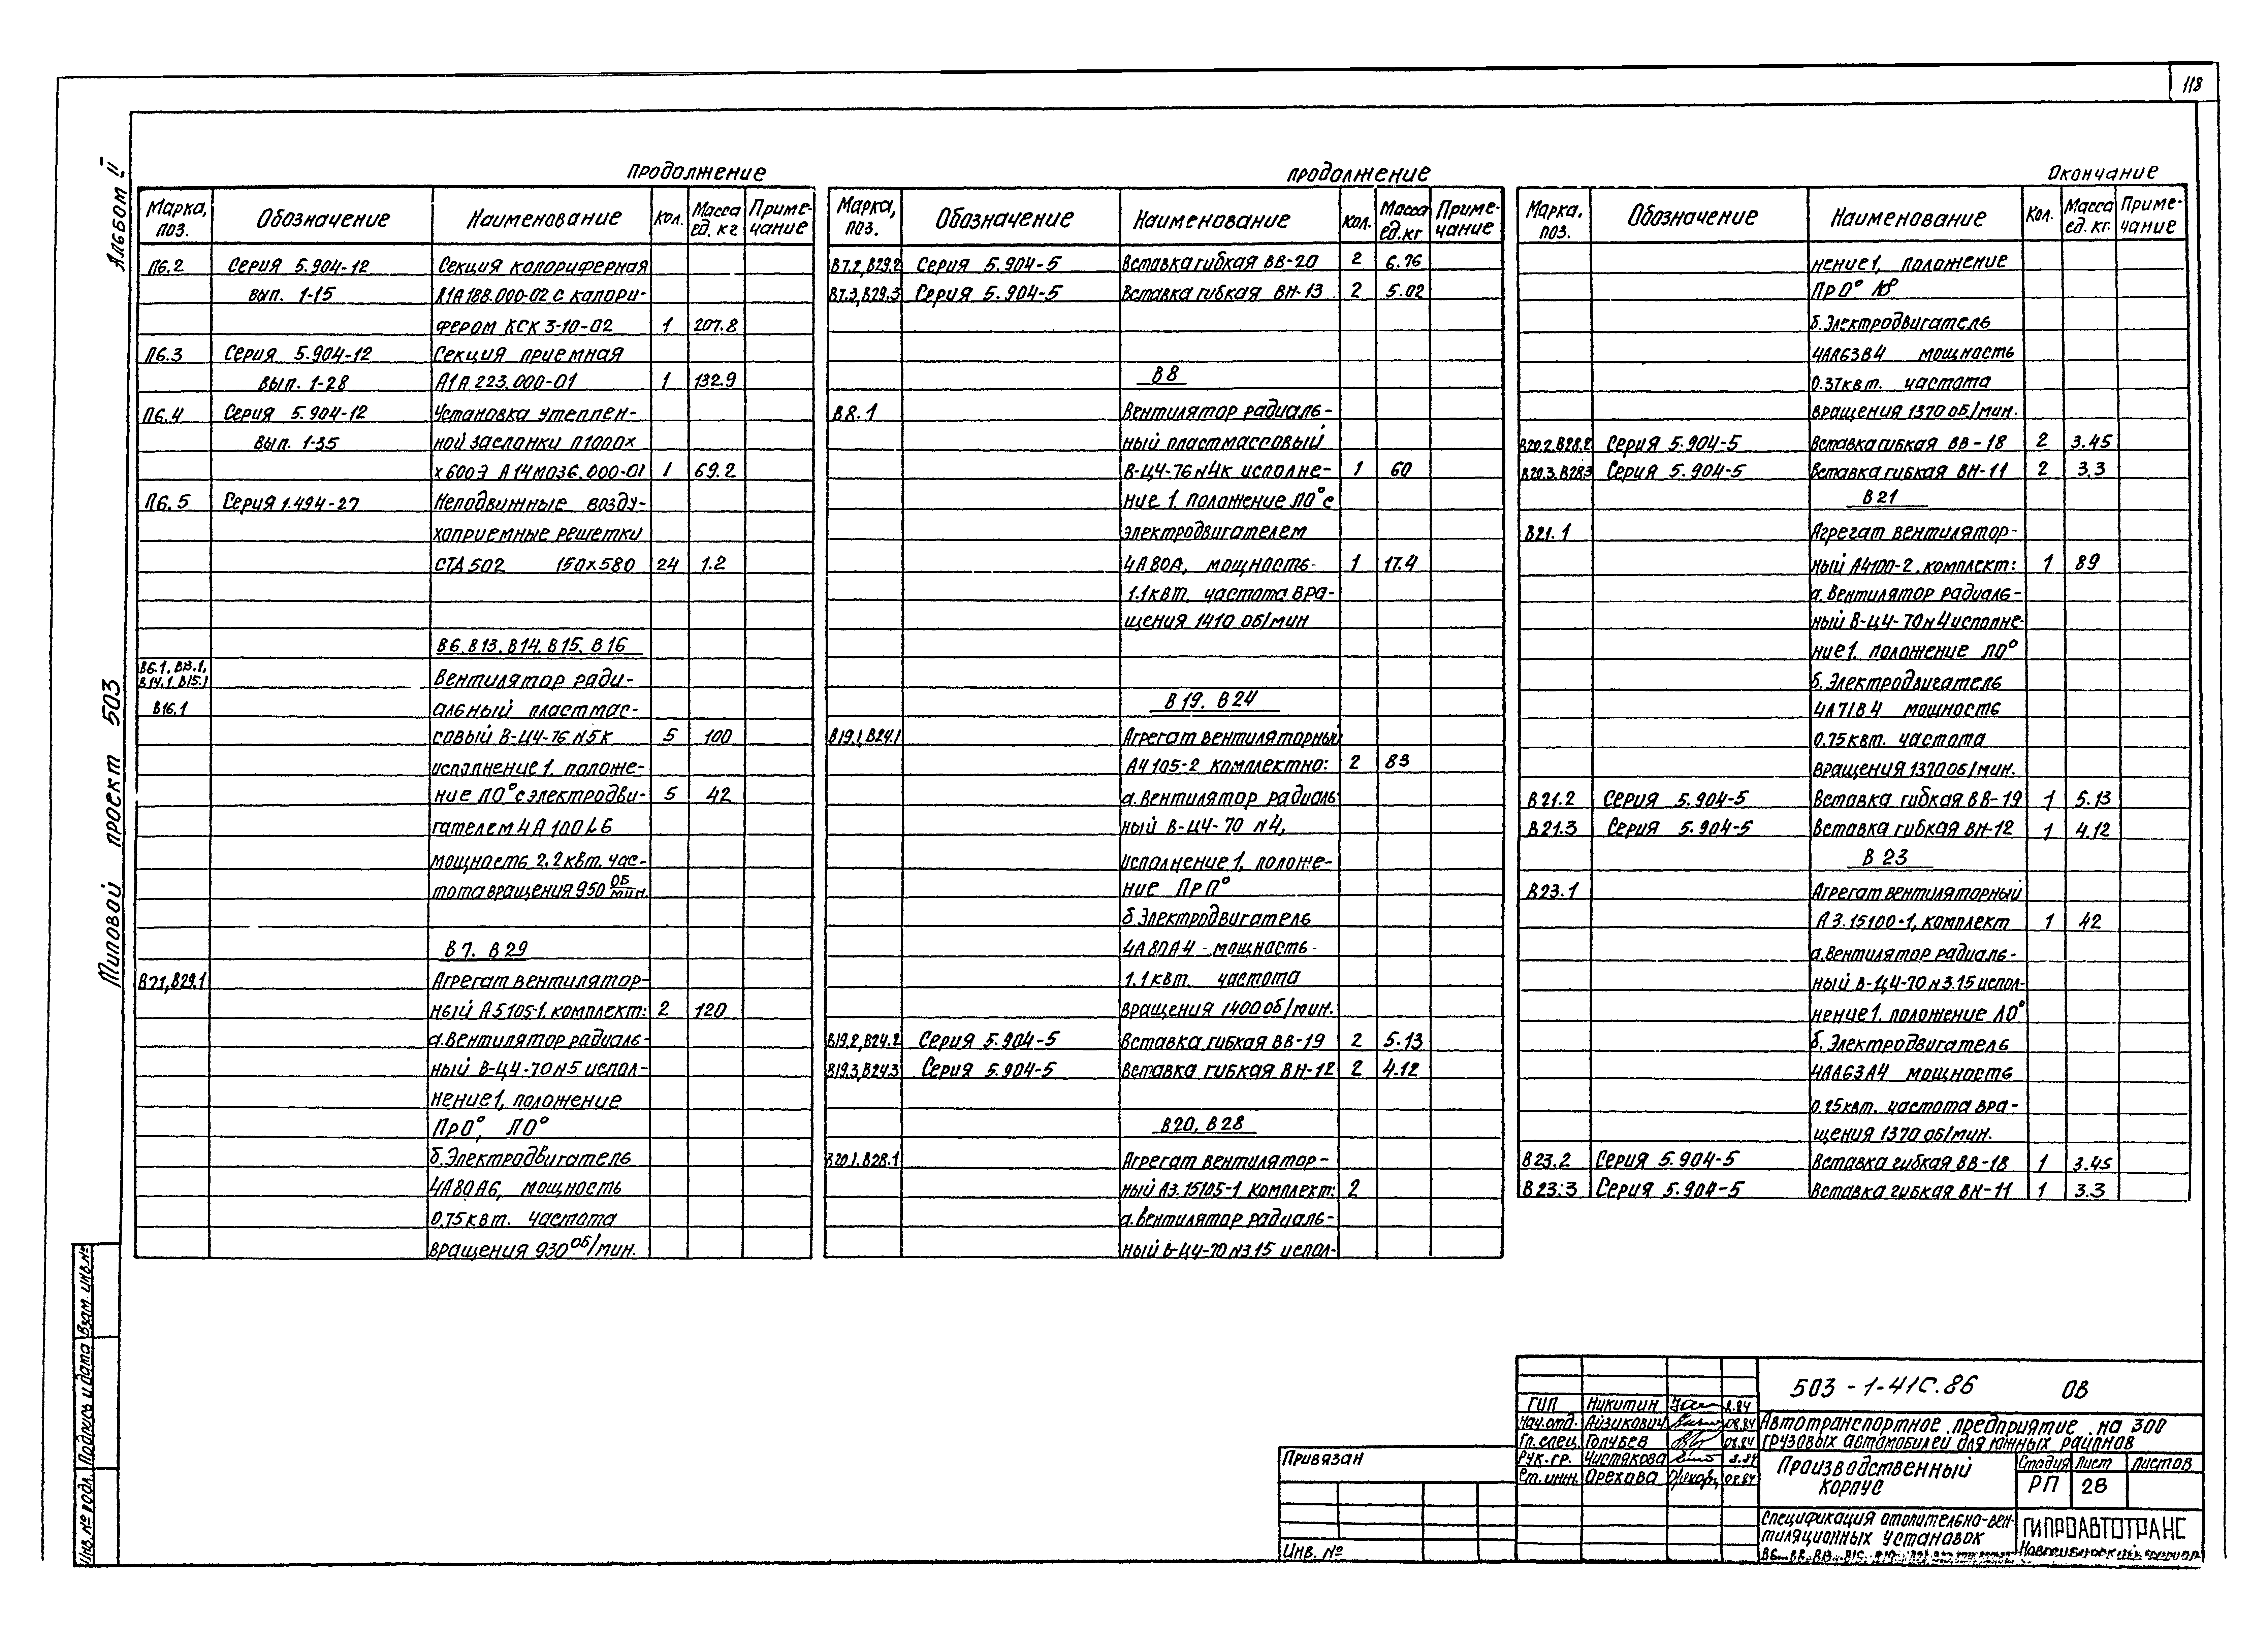 118
Альбом II
Типовой проект 503
продолжение
Марка, поз. Обозначение Наименование Кол. Масса ед. кг Приме-чание
П6.2 Серия 5.904-12 Секция колориферная
вып. 1-15 А1А188.000-02 с калори-
фером КСК 3-10-02 1 207.8
П6.3 Серия 5.904-12 Секция приемная
вып. 1-28 А1А 223.000-01 1 132.9
П6.4 Серия 5.904-12 Установка утеплен-
вып. 1-35 ной заслонки П1000х
х600Э А14М036.000-01 1 69.2
П6.5 Серия 1.494-27 Неподвижные возду-
хоприемные решетки
СТД 502 150х580 24 1.2
В6. В13. В14. В15. В16
В6.1, В13.1,
В14.1. В15.1 Вентилятор ради-
В16.1 альный пластмас-
совый В-Ц4-76 N5К 5 100
исполнение 1. положе-
ние Л0° с электродви- 5 42
гателем 4А 100L6
мощность 2.2 квт. час-
тота вращения 950 об/мин.
В7. В29
В7.1, В29.1 Агрегат вентилятор-
ный А5105-1. комплект: 2 120
а. Вентилятор радиаль-
ный В-Ц4-70 N5 испол-
нение 1, положение
Пр0°, Л0°
б. Электродвигатель
4А80А6, мощность
0,75 квт. частота
вращения 930 об/мин.
продолжение
Марка, поз. Обозначение Наименование Кол. Масса ед. кг Приме-чание
В7.2, В29.2 Серия 5.904-5 Вставка гибкая ВВ-20 2 6.76
В7.3, В29.3 Серия 5.904-5 Вставка гибкая ВН-13 2 5.02
В8
В8.1 Вентилятор радиаль-
ный пластмассовый
В-Ц4-76 N4К исполне- 1 60
ние 1. положение Л0° с
электродвигателем
4А80А, мощность 1 17.4
1.1 квт, частота вра-
щения 1410 об/мин
В19. В24
В19.1, В24.1 Агрегат вентиляторный
А4105-2 комплектно: 2 83
а. Вентилятор радиаль
ный В-Ц4-70 N4,
исполнение 1, положе-
ние ПрП°
б. Электродвигатель
4А80А4 - мощность
1.1 квт частота
вращения 1400 об/мин.
В19.2, В24.2 Серия 5.904-5 Вставка гибкая ВВ-19 2 5.13
В19.3, В24.3 Серия 5.904-5 Вставка гибкая ВН-12 2 4.12
В20. В28
В20.1. В28.1 Агрегат вентилятор-
ный А3.15105-1 комплект: 2
а. Вентилятор радиаль-
ный В-Ц4-70 N3.15 испол-
Окончание
Марка, поз. Обозначение Наименование Кол. Масса ед. кг. Приме-чание
нение 1, положение
Пр0° Л0°
б. Электродвигатель
4АА63В4 мощность
0.37 квт. частота
вращения 1370 об/мин.
В20.2. В28.2 Серия 5.904-5 Вставка гибкая ВВ-18 2 3.45
В20.3. В28.3 Серия 5.904-5 Вставка гибкая ВН-11 2 3.3
В21
В21.1 Агрегат вентилятор-
ный А4100-2, комплект: 1 89
а. Вентилятор радиаль-
ный В-Ц4-70 N4 исполне-
ние 1. положение Л0°
б. Электродвигатель
4А71В4 мощность
0.75 квт. частота
вращения 1370 об/мин.
В21.2 Серия 5.904-5 Вставка гибкая ВВ-19 1 5.13
В21.3 Серия 5.904-5 Вставка гибкая ВН-12 1 4.12
В23
В23.1 Агрегат вентиляторный
А3.15100-1, комплект 1 42
а. Вентилятор радиаль-
ный В-Ц4-70 N3.15 испол-
нение 1. положение Л0°
б. Электродвигатель
4АА63А4 мощность
0.25 квт. частота вра-
щения 1370 об/мин.
В23.2 Серия 5.904-5 Вставка гибкая ВВ-18 1 3.45
В23.3 Серия 5.904-5 Вставка гибкая ВН-11 1 3.3
Инв. № подл. Подпись и дата Взам. инв. №
Привязан
Инв. №
ГИП Никитин 8.84
Нач. отд. Айзикович 08.84
Гл. спец. Голубев 08.84
Рук. гр. Чистякова 8.84
Ст. инж. Орехова 08.84
503-1-41с.86 ОВ
Автотранспортное предприятие на 300
грузовых автомобилей для южных районов
Производственный корпус
Стадия Лист Листов
РП 28
Спецификация отопительно-вен-
тиляционных установок
ГИПРОАВТОТРАНС